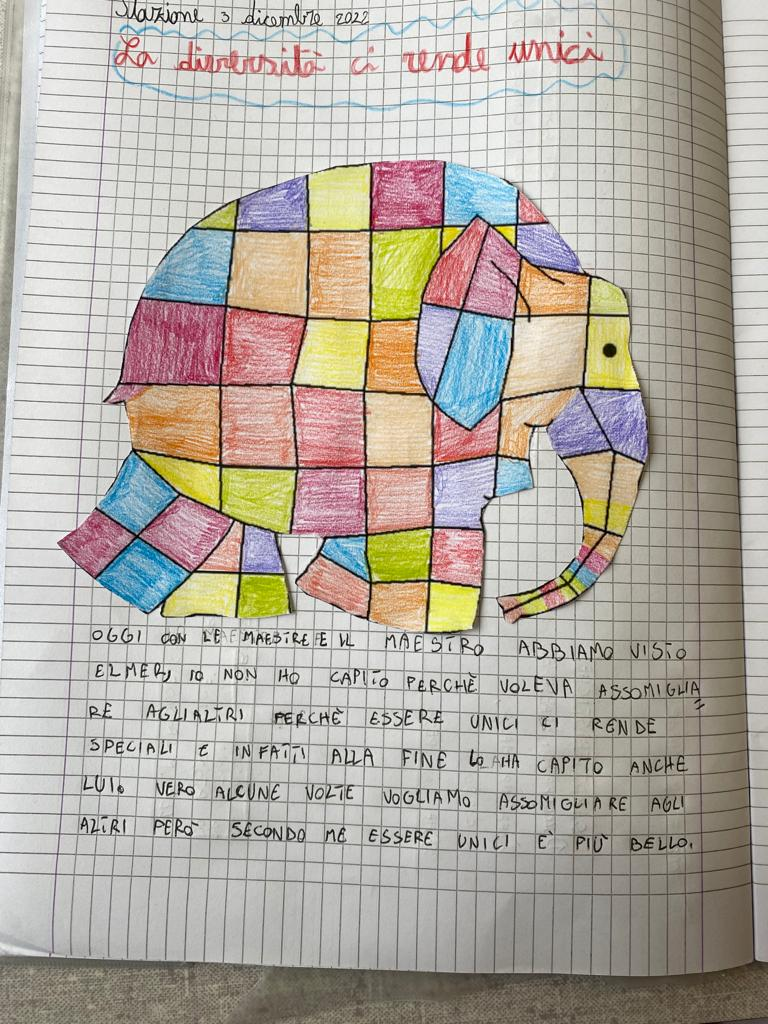 Stazione 3 dicembre 2022
La diversità ci rende unici
OGGI CON LE MAESTRE E IL MAESTRO ABBIAMO VISTO
ELMER, IO NON HO CAPITO PERCHÈ VOLEVA ASSOMIGLIA
RE AGLI ALTRI PERCHÈ ESSERE UNICI CI RENDE
SPECIALI E INFATTI ALLA FINE LO HA CAPITO ANCHE
LUI. VERO ALCUNE VOLTE VOGLIAMO ASSOMIGLIARE AGLI
ALTRI PERÒ SECONDO ME ESSERE UNICI È PIÙ BELLO.